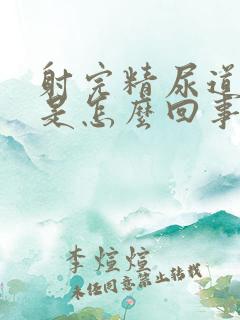 射完精尿道
是怎麼回事
李煊煊
未经同意禁止转载